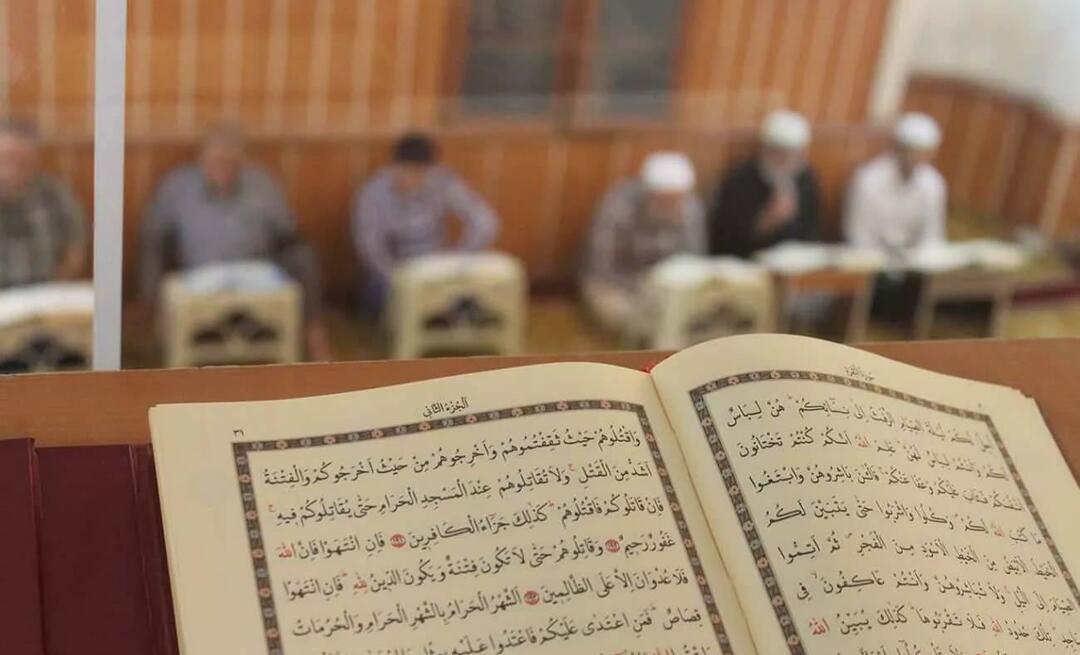 سورة البقرة
اُحِلَّ لَكُمْ لَيْلَةَ الصِّيَامِ الرَّفَثُ اِلٰى نِسَائِكُمْ هُنَّ لِبَاسٌ
لَكُمْ وَاَنْتُمْ لِبَاسٌ لَهُنَّ عَلِمَ اللّٰهُ اَنَّكُمْ كُنْتُمْ تَخْتَانُونَ
اَنْفُسَكُمْ فَتَابَ عَلَيْكُمْ وَعَفَا عَنْكُمْ فَالْـٰٔنَ بَاشِرُوهُنَّ وَابْتَغُوا
مَا كَتَبَ اللّٰهُ لَكُمْ وَكُلُوا وَاشْرَبُوا حَتّٰى يَتَبَيَّنَ لَكُمُ
الْخَيْطُ الْاَبْيَضُ مِنَ الْخَيْطِ الْاَسْوَدِ مِنَ الْفَجْرِ ثُمَّ اَتِمُّوا
الصِّيَامَ اِلَى الَّيْلِ وَلَا تُبَاشِرُوهُنَّ وَاَنْتُمْ عَاكِفُونَ فِي
تِلْكَ حُدُودُ اللّٰهِ فَلَا تَقْرَبُوهَا كَذٰلِكَ يُبَيِّنُ اللّٰهُ
اَلْجُزْءُ الثَّانِي
٣١
وَاقْتُلُوهُمْ حَيْثُ ثَقِفْتُمُوهُمْ وَاَخْرِجُوهُمْ مِنْ حَيْثُ اَخْرَجُوكُمْ وَالْفِتْنَةُ
اَشَدُّ مِنَ الْقَتْلِ وَلَا تُقَاتِلُوهُمْ عِنْدَ الْمَسْجِدِ الْحَرَامِ حَتّٰى يُقَاتِلُوكُمْ فِيهِ
فَاِنْ قَاتَلُوكُمْ فَاقْتُلُوهُمْ كَذٰلِكَ جَزَاءُ الْكَافِرِينَ ١٩١ فَاِنِ انْتَهَوْا فَاِنَّ اللّٰهَ
غَفُورٌ رَحِيمٌ ١٩٢ وَقَاتِلُوهُمْ حَتّٰى لَا تَكُونَ فِتْنَةٌ وَيَكُونَ الدِّينُ لِلّٰهِ فَاِنِ انْتَهَوْا
فَلَا عُدْوَانَ اِلَّا عَلَى الظَّالِمِينَ ١٩٣ اَلشَّهْرُ الْحَرَامُ بِالشَّهْرِ الْحَرَامِ وَالْحُرُمَاتُ
قِصَاصٌ فَمَنِ اعْتَدٰى عَلَيْكُمْ فَاعْتَدُوا عَلَيْهِ بِمِثْلِ